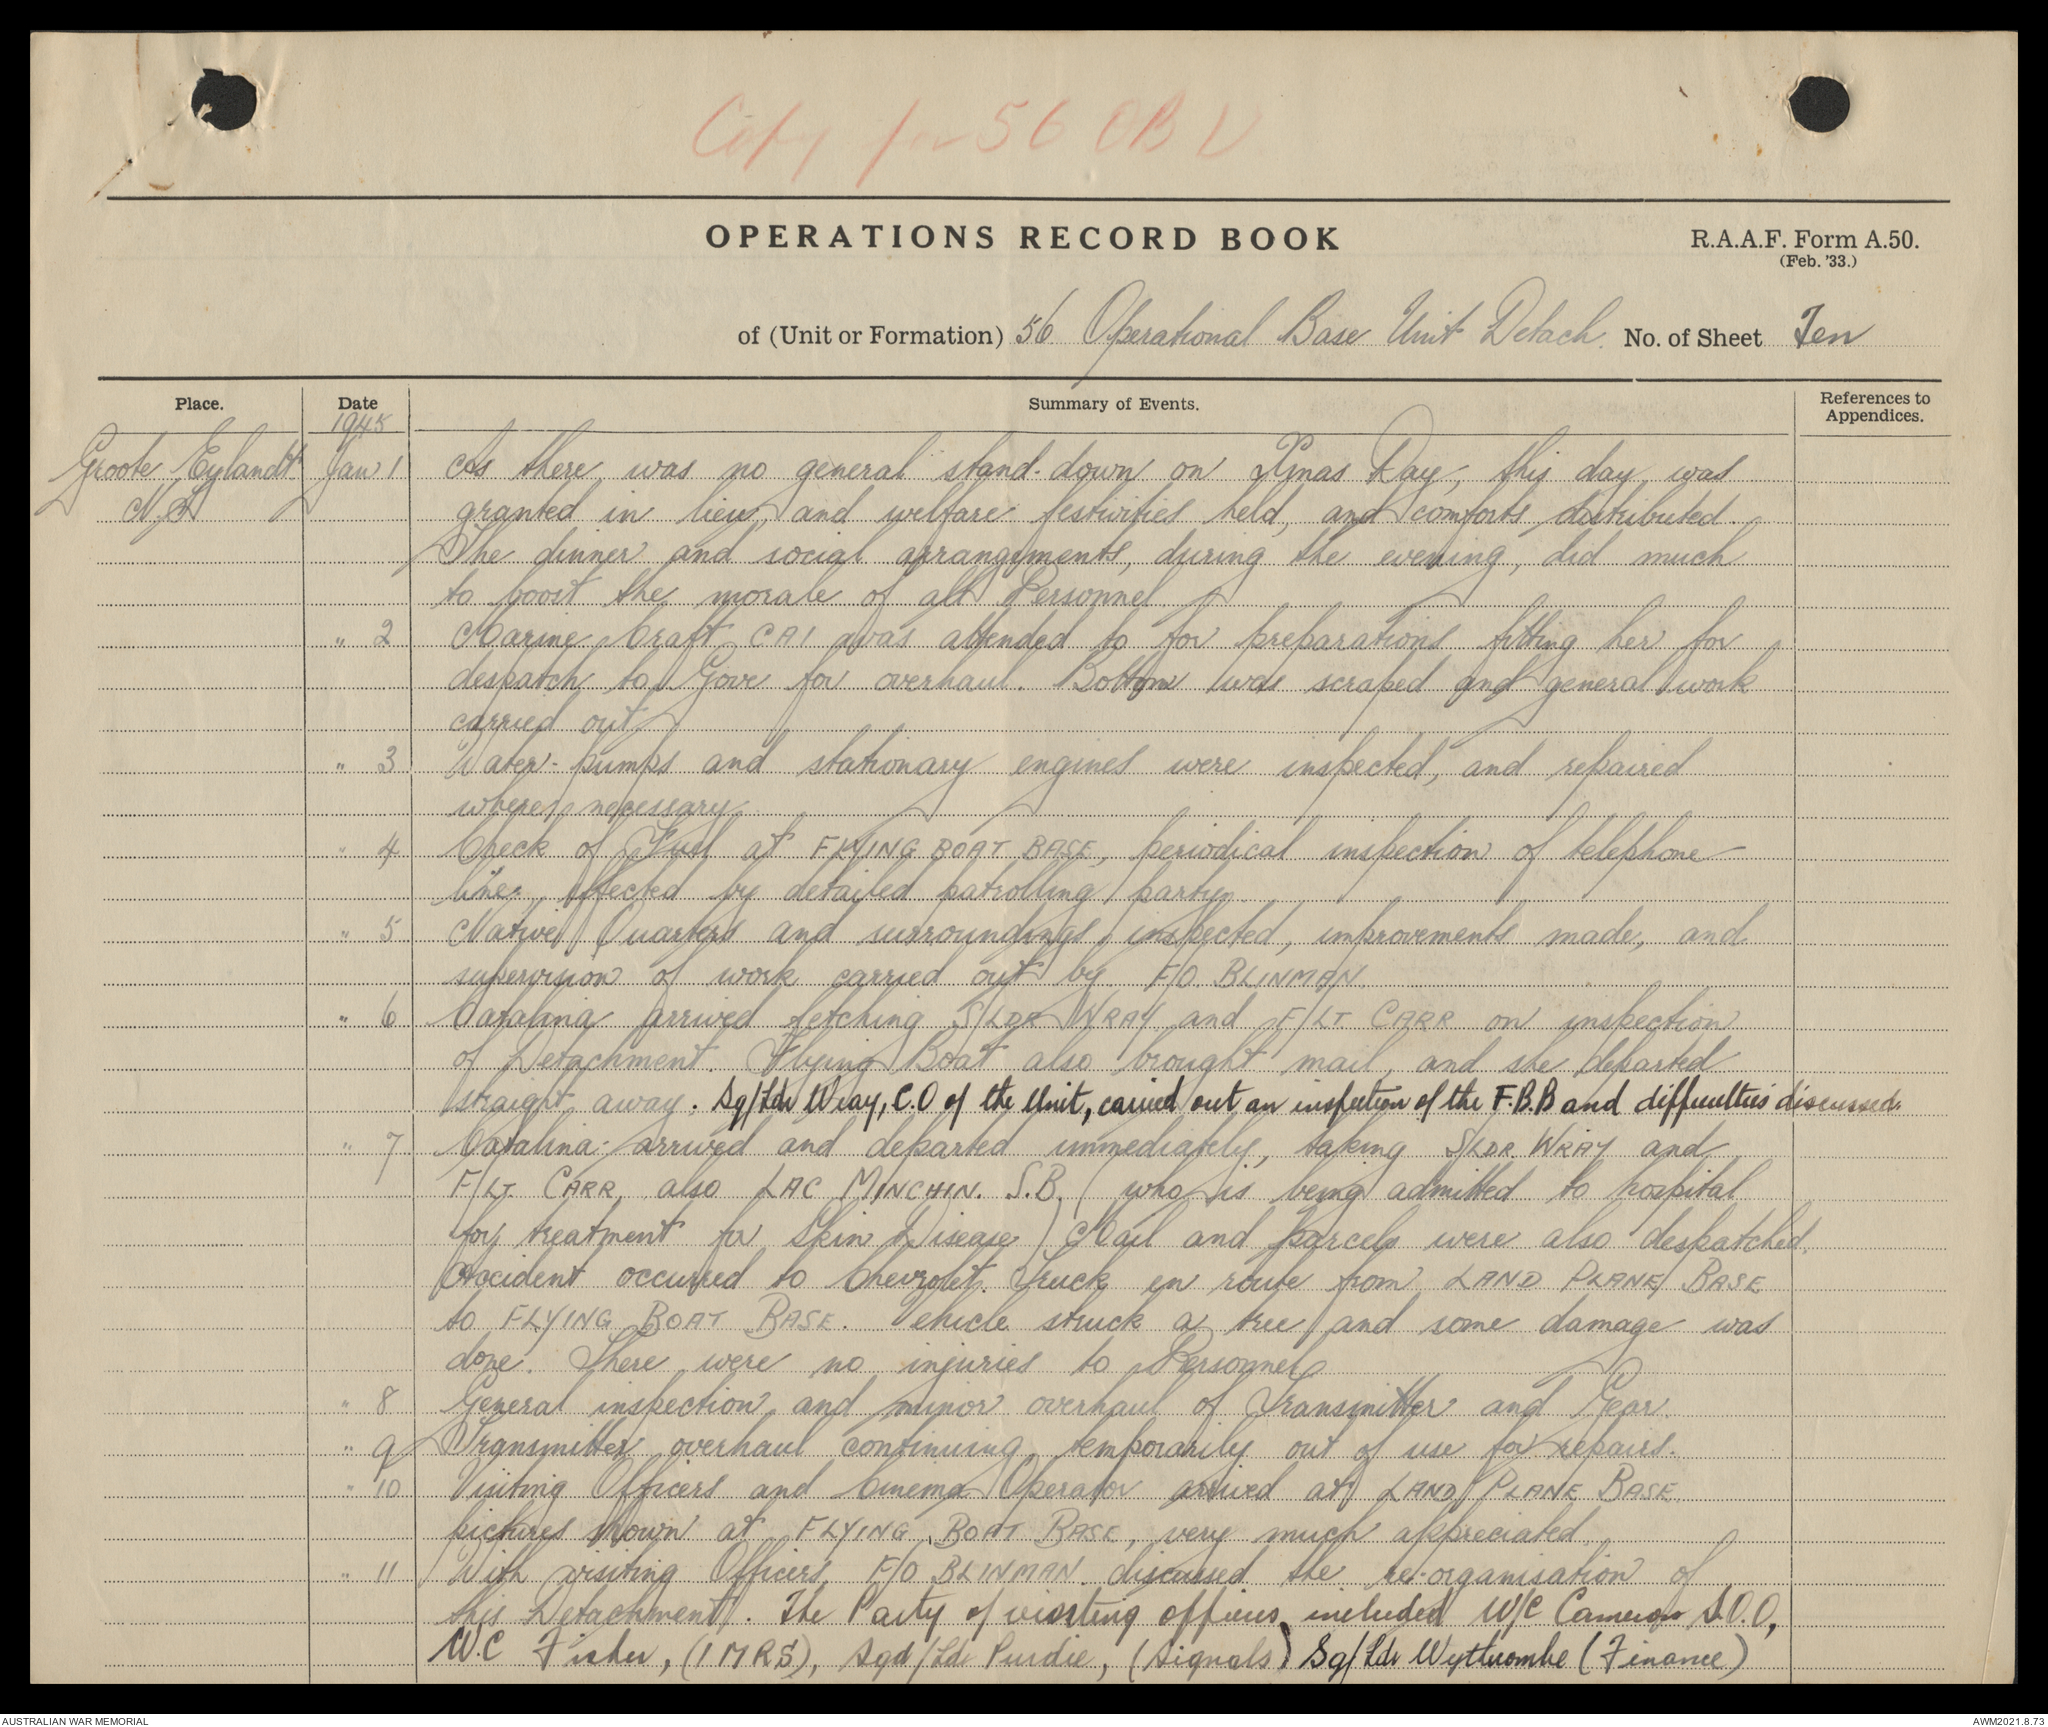 Copy for 56 OBU
OPERATIONS RECORD BOOK
R.A.A.F. Form A.50.
(Feb. '33.)
of (Unit or Formation) 56 Operational Base Unit Detach. No. of Sheet Ten
Place. Date Summary of Events. References to Appendices.
1945
Groote Eylandt Jan 1 As there was no general stand-down on Xmas Day, this day was
N.T. granted in lieu, and welfare festivities held, and comforts distributed.
The dinner and social arrangements, during the evening, did much
to boost the morale of all Personnel
" 2 Marine Craft CA1 was attended to for preparations fitting her for
despatch to Gove for overhaul. Bottom was scraped and general work
carried out.
" 3 Water-pumps and stationary engines were inspected, and repaired
where necessary.
" 4 Check of Fuel at FLYING BOAT BASE, periodical inspection of telephone
line, effected by detailed patrolling party.
" 5 Native Quarters and surroundings inspected, improvements made, and
supervision of work carried out by F/O BLINMAN.
" 6 Catalina arrived fetching S/LDR WRAY and F/LT CARR on inspection
of Detachment. Flying Boat also brought mail, and she departed
straight away. Sq/Ldr Wray, C.O of the Unit, carried out an inspection of the F.B.B and difficulties discussed.
" 7 Catalina arrived and departed immediately, taking S/LDR. WRAY and
F/LT. CARR, also LAC MINCHIN. S.B. (who is being admitted to hospital
for treatment for Skin Disease) Mail and parcels were also despatched.
Accident occurred to Chevrolet Truck en route from LAND PLANE BASE
to FLYING BOAT BASE. Vehicle struck a tree and some damage was
done. There were no injuries to Personnel.
" 8 General inspection and minor overhaul of Transmitter and Gear.
" 9 Transmitter overhaul continuing, temporarily out of use for repairs.
" 10 Visiting Officers and Cinema Operator arrived at LAND PLANE BASE
pictures shown at FLYING BOAT BASE, very much appreciated.
" 11 With visiting Officers, F/O BLINMAN discussed the re-organisation of
this Detachment. The Party of visiting officers included W/C Cameron S.O.O,
W.C Fisher, (1 MRS), Sqd/Ldr Purdie, (Signals) Sq/Ldr Wythcombe (Finance)
AUSTRALIAN WAR MEMORIAL
AWM2021.8.73